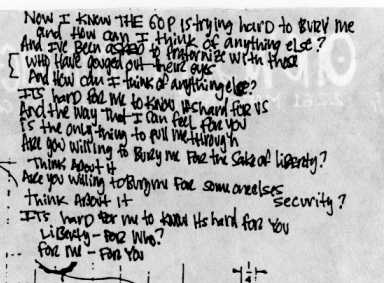 NOW I KNOW THE GOP IS trying harD to BURY me
and HOW CAN I think of anything else?
And I've Been asked to fraternize with those
who Have gouged out their eyes
And How can I think of anything else?
ITS harD for me to KNOW its hard for us
And the way that I can feel for you
is the only thing to pull me through
Are you willing to Bury me For the Sake of liBerty?
Think About it
Are you willing to Bury me For someone elses
security?
think About it
ITS harD for me to KNOW Its hard for You
LiBerty - FOR Who?
for me - FOR YOU
1
4